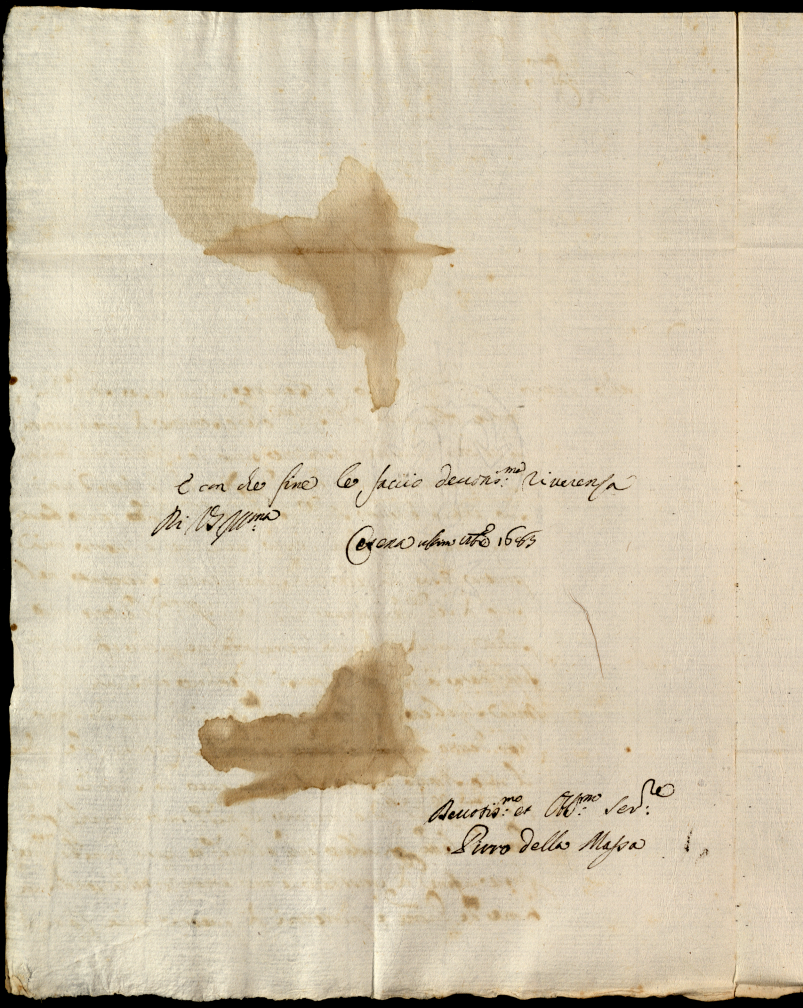 E con che fine le faccio deuotis.mo riuerenza
Di VS Ill.ma
Cesena ultimo 1685
Deuotis.mo et Obb.mo Ser.re
Pirro della Massa